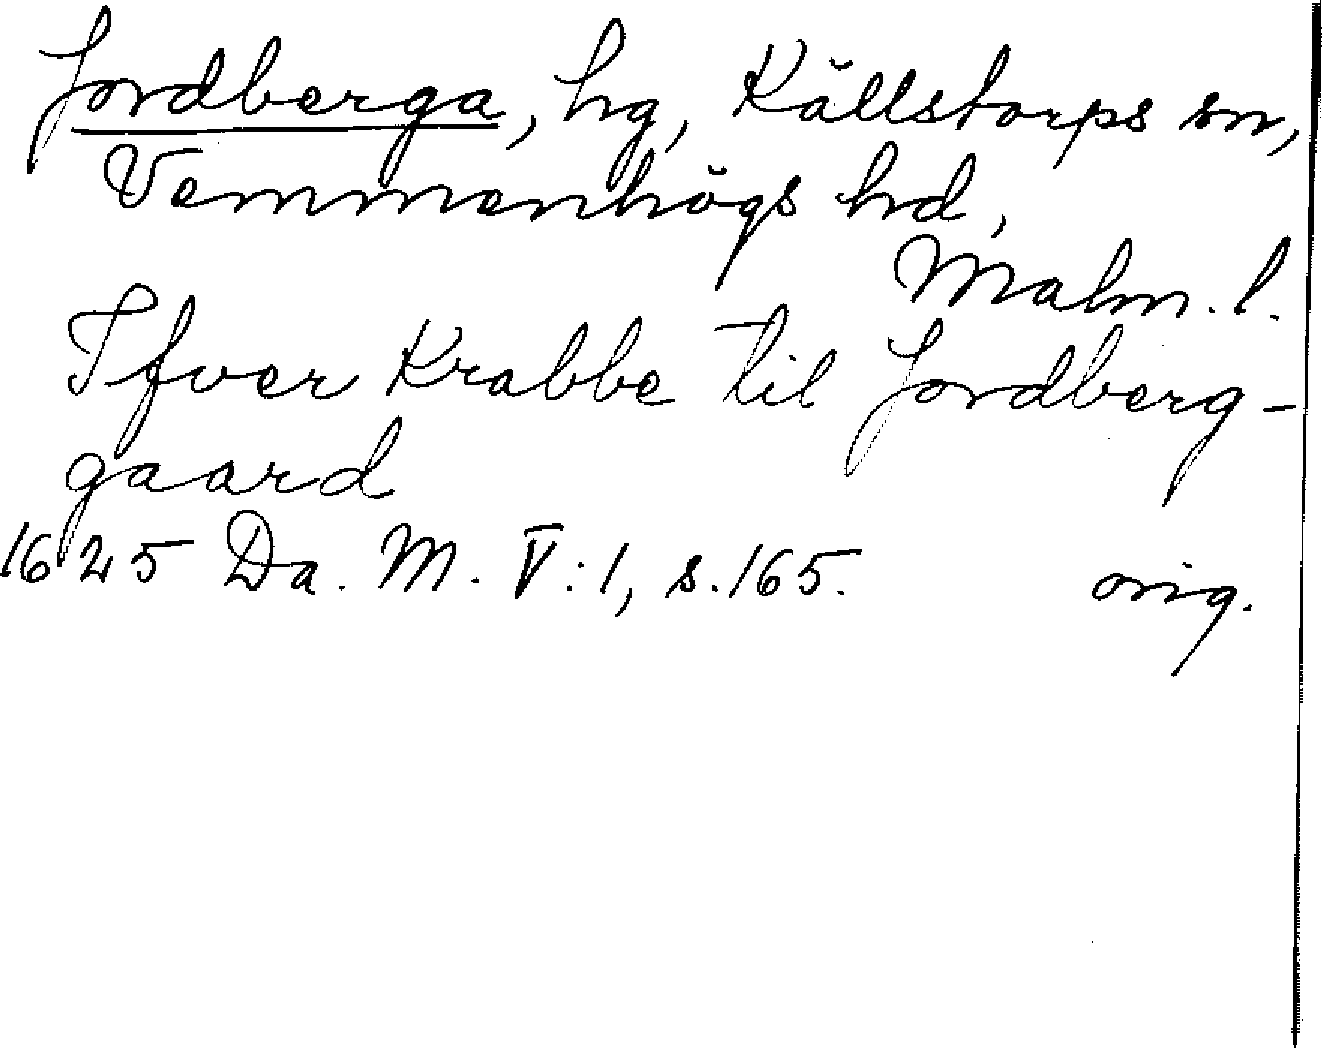 Jordberga, hg, Källstorps sn,
Vemmenhögs hd,
Malm. l.
Ifver Krabbe til Jordberg-
gaard
1625 Da. M. V:1, s. 165. orig.